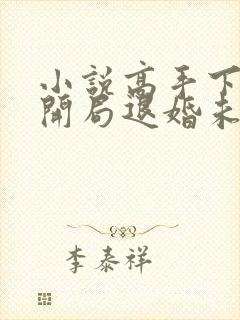 小説高手下
開局退婚未
李泰祥